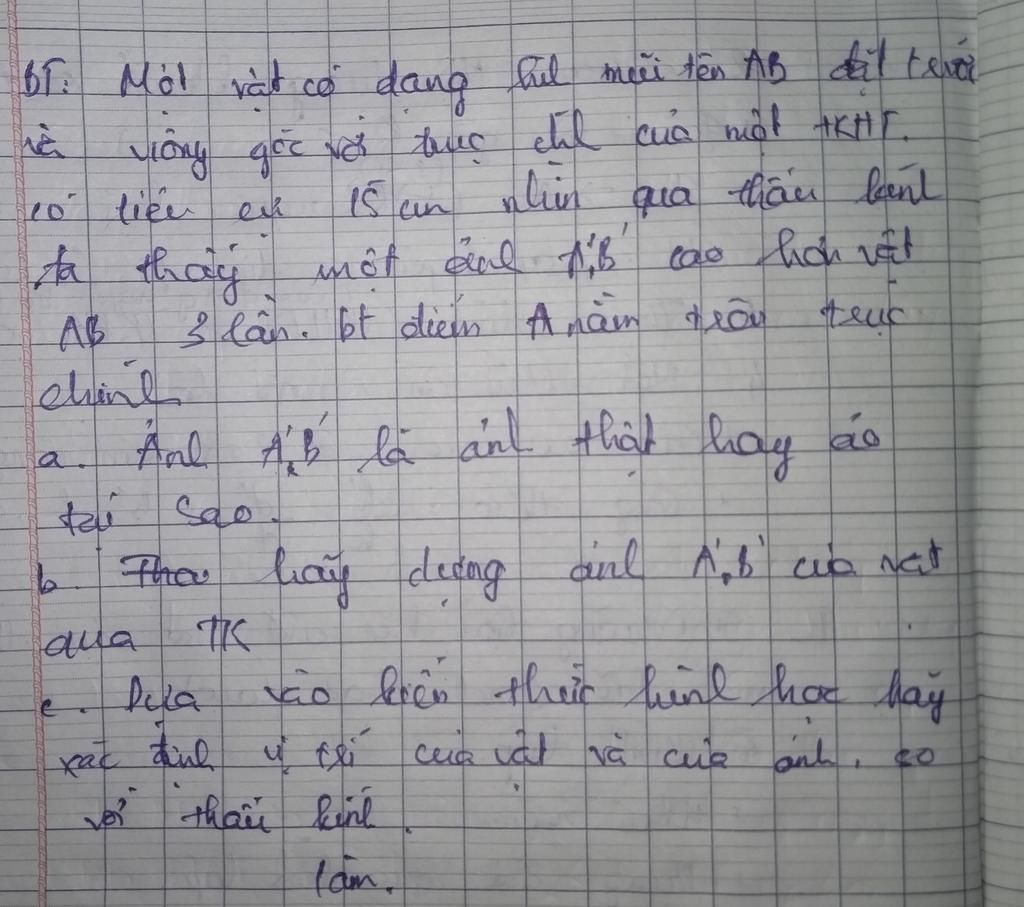 BT: Một vật có dạng hình mũi tên AB đặt trước
và vuông góc với trục chính của một TKHT.
có tiêu cự 15 cm nhìn qua thấu kính
ta thấy một ảnh A'B' cao hơn vật
AB 3 lần. bt điểm A nằm trên trục
chính
a. Ảnh A'B' là ảnh thật hay ảo
tại sao.
b. hãy dựng ảnh A'B' của vật
qua TK
c. Dựa vào kiến thức hình học hãy
xác định vị trí của vật và của ảnh. so
với thấu kính.
làm.